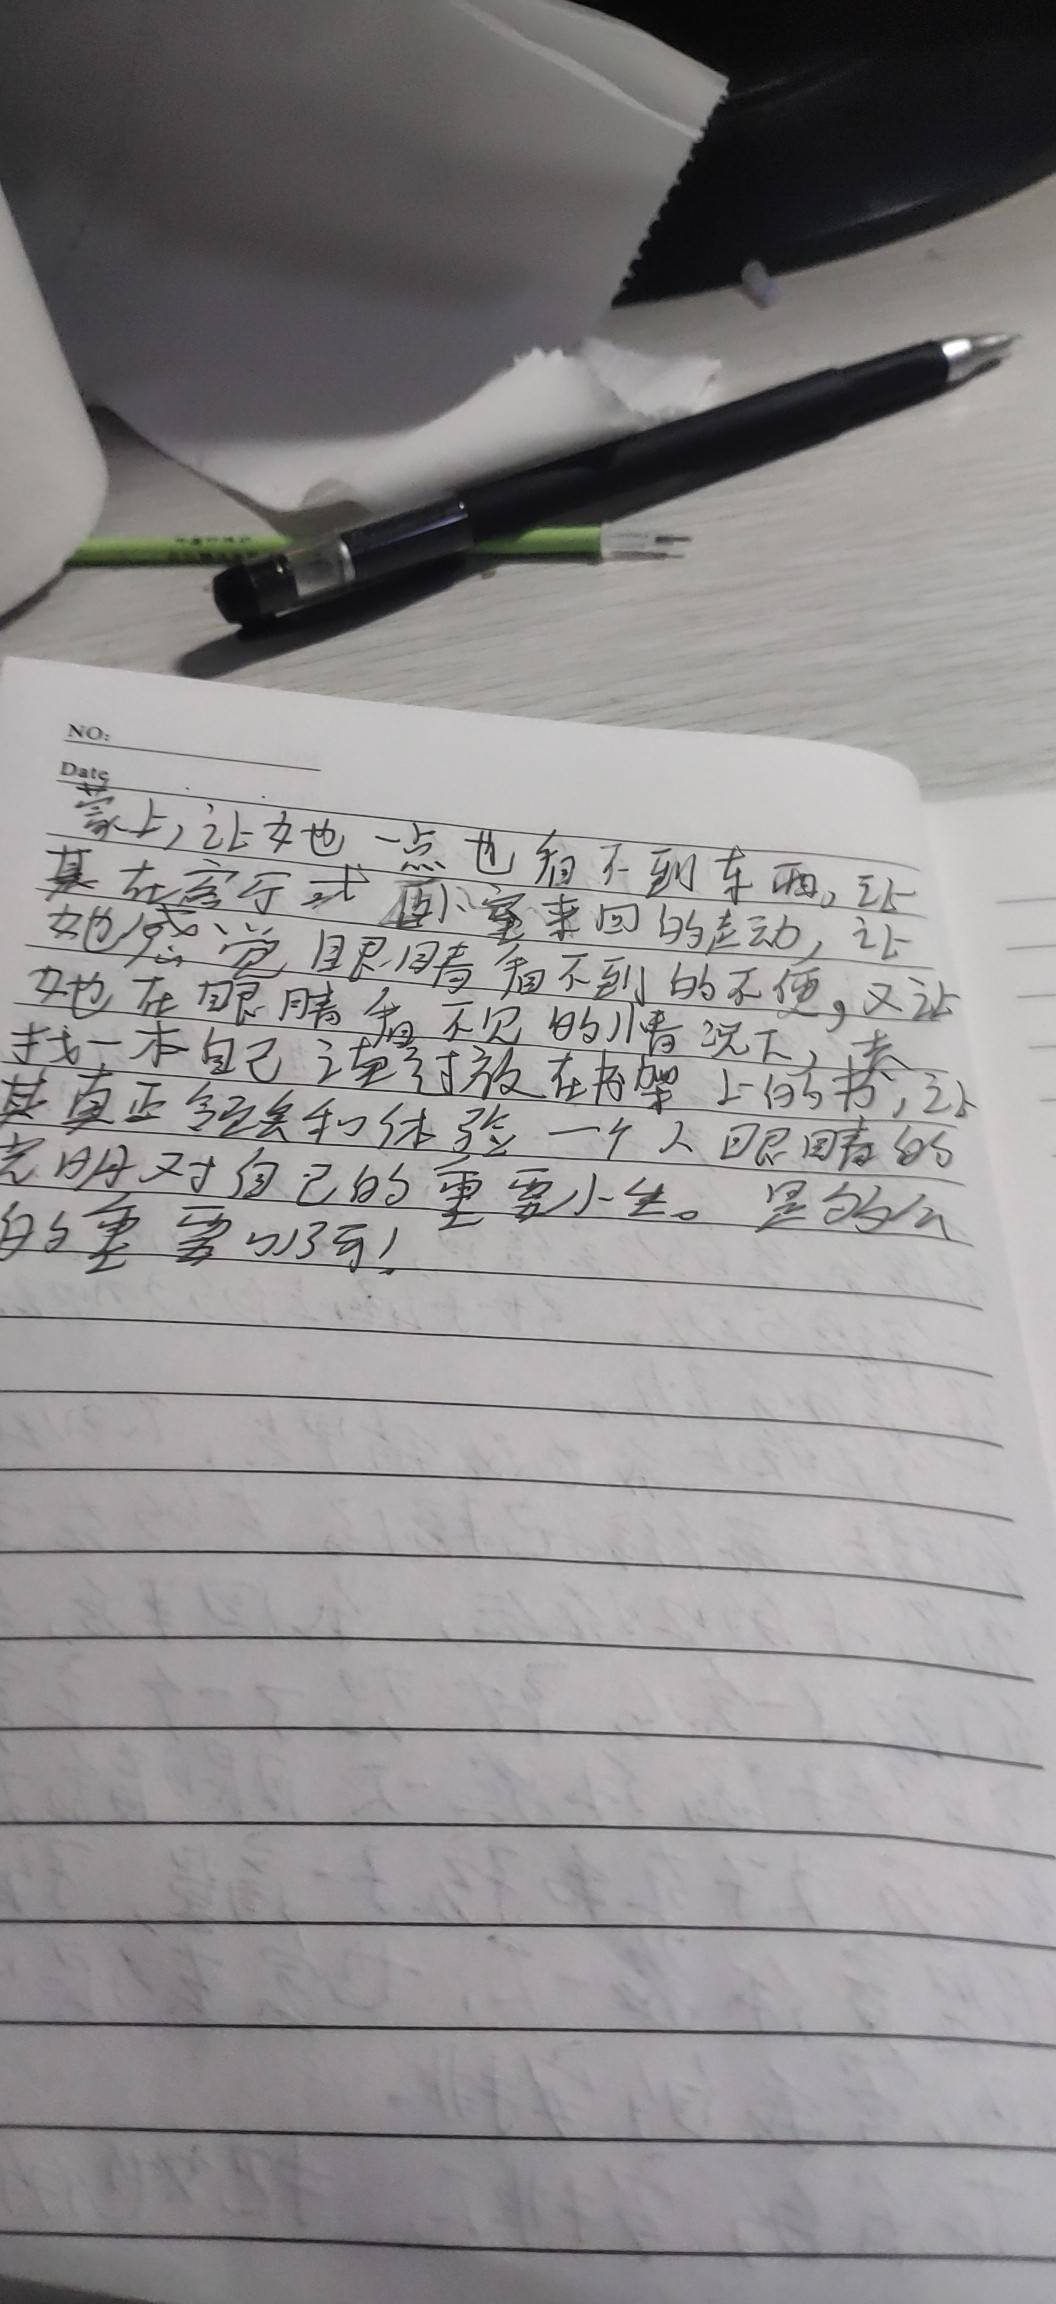 NO:
Date
蒙上，让她一点也看不到东西。让
其在客厅或卧室来回的走动，让
她感觉眼睛看不到的不便，又让
她在眼睛看不见的情况下，去
找一本自己读过放在书架上的书，让
其真正领会和体验一个人眼睛的
完明对自己的重要性。是的么
的重要